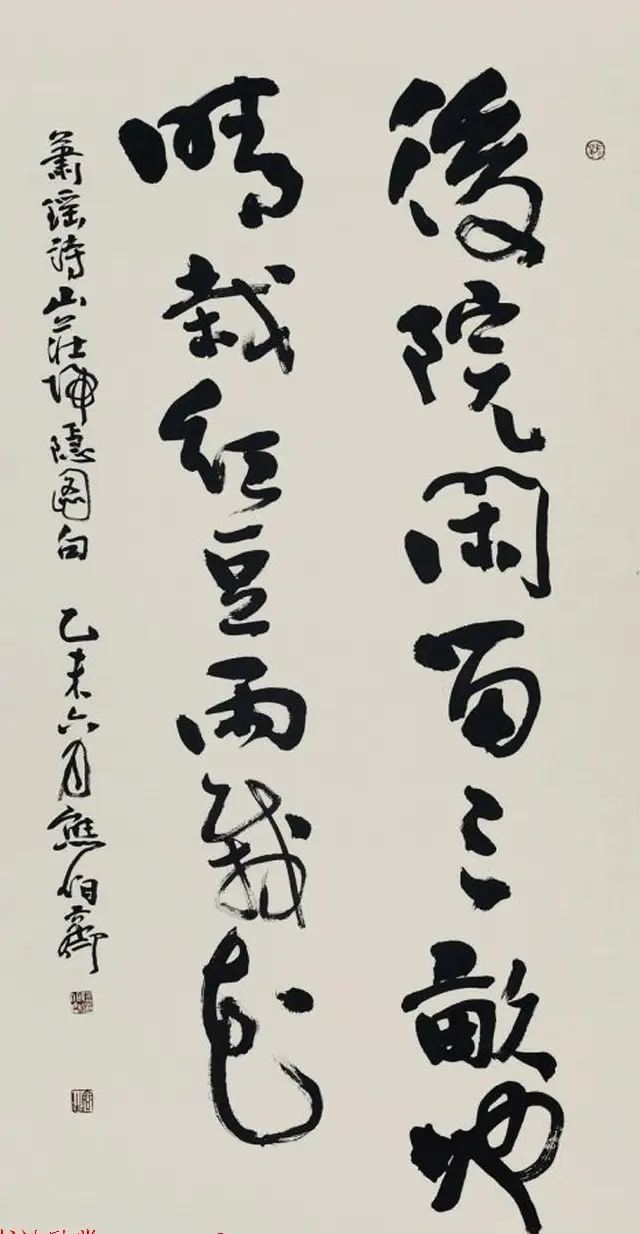 後院閑留三畝地
晴栽紅豆雨栽花
蕭瑶詩山莊歸隱圖句 乙未六月熊伯齊